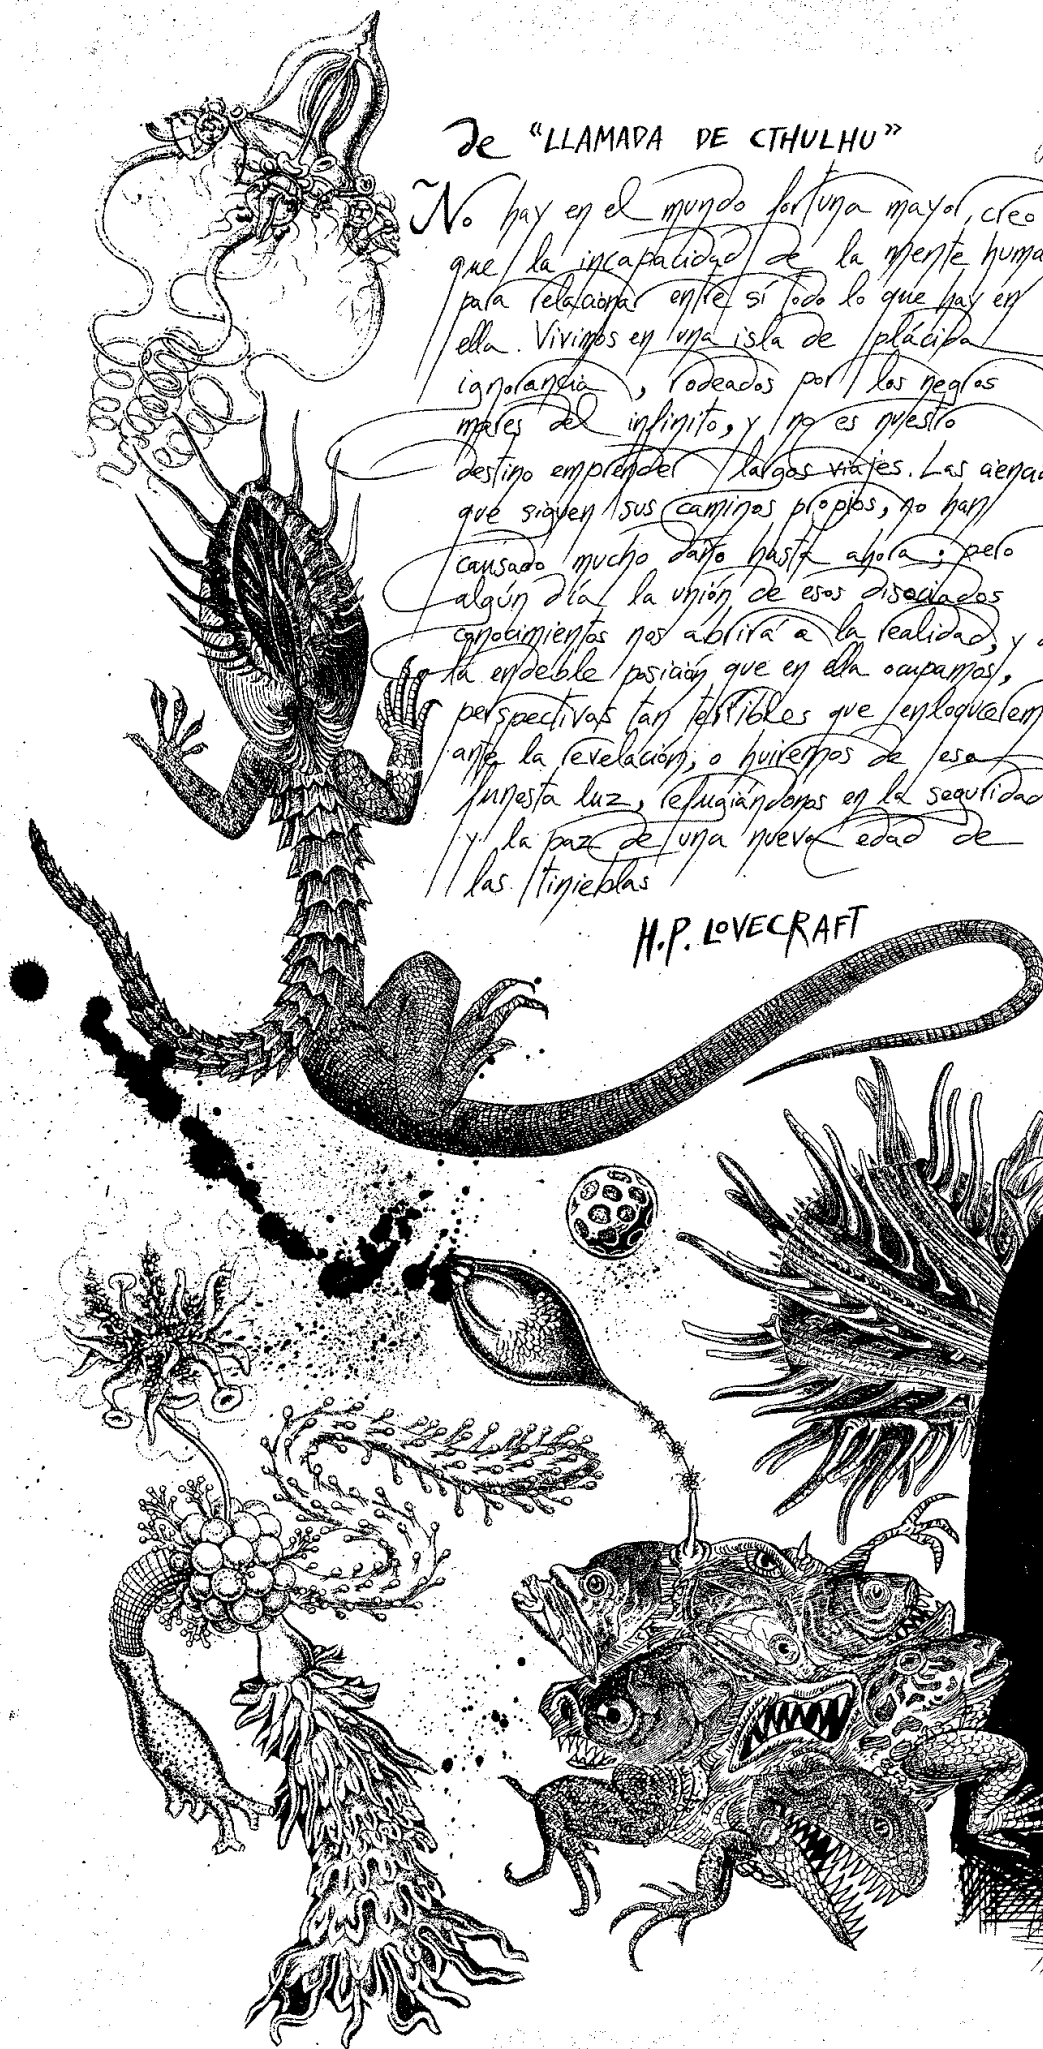 de "LLAMADA DE CTHULHU"
No hay en el mundo fortuna mayor, creo
que la incapacidad de la mente huma
para relacionar entre sí todo lo que hay en
ella. Vivimos en una isla de plácida
ignorancia, rodeados por los negros
mares del infinito, y no es nuestro
destino emprender largos viajes. Las cienci
que siguen sus caminos propios, no han
causado mucho daño hasta ahora; pero
algún día la unión de esos disociados
conocimientos nos abrirá a la realidad, y a
la endeble posición que en ella ocupamos,
perspectivas tan terribles que enloquecerem
ante la revelación, o huiremos de esa
funesta luz, refugiándonos en la seguridad
y la paz de una nueva edad de
las tinieblas
H.P. LOVECRAFT